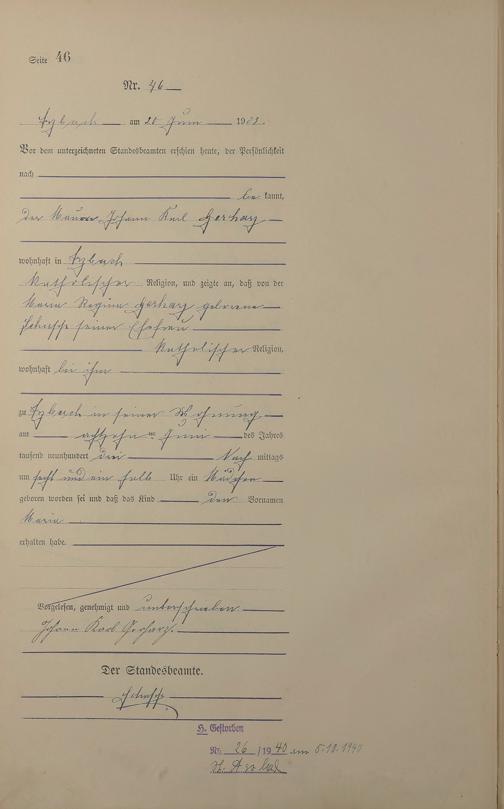 Seite 46
Nr. 46
Arzbach am 20 Juni 1903.
Vor dem unterzeichneten Standesbeamten erschien heute, der Persönlichkeit
nach
be kannt,
der Maurer Johann Karl Gerharz
wohnhaft in Arzbach
katholischer Religion, und zeigte an, daß von der
Maria Regina Gerharz geborene
seiner Ehefrau
katholischer Religion,
wohnhaft bei ihm
zu Arzbach in seiner Wohnung
am achtzehn ten Juni des Jahres
tausend neunhundert drei Nach mittags
um sechs und ein halb Uhr ein Mädchen
geboren worden sei und daß das Kind den Vornamen
Maria
erhalten habe.
Vorgelesen, genehmigt und unterschrieben
Johann Karl Gerharz.
Der Standesbeamte.
H. Gestorben
Nr. 26 /1940 am 5.10.1940
St. A.